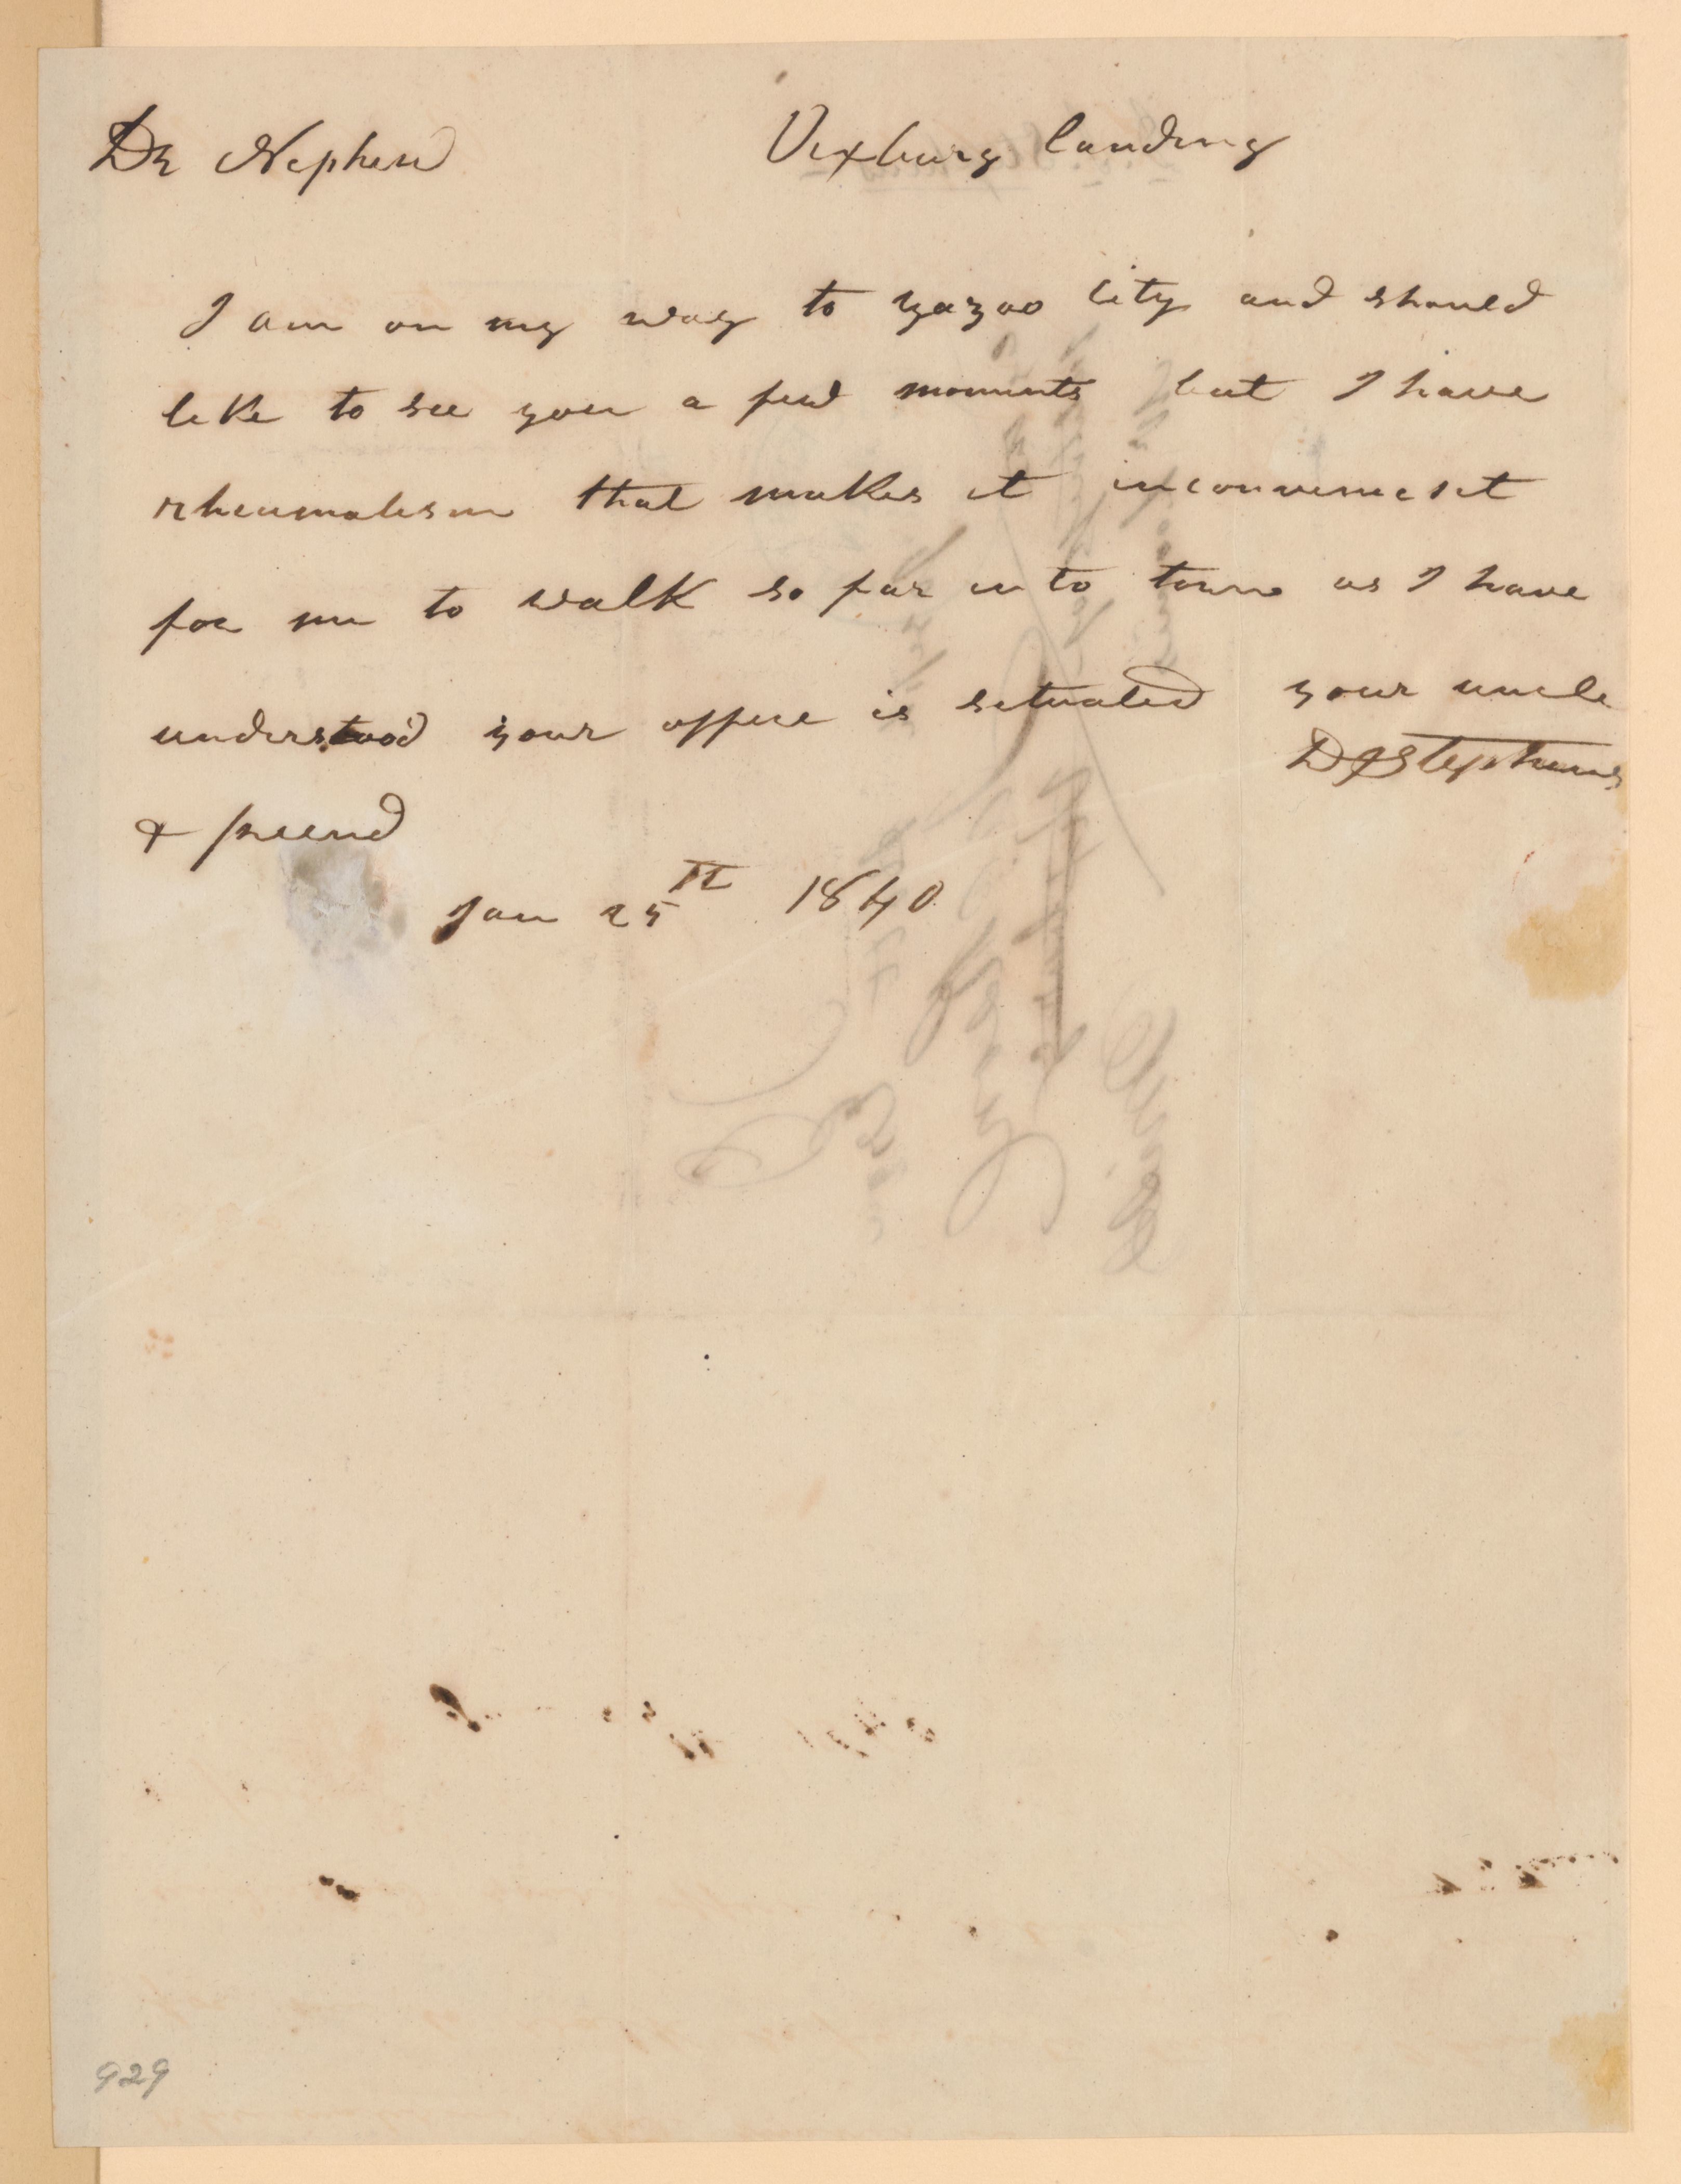 Dr Nephew Vixburg landing
I am on my way to yazoo City and should
like to see you a few moments but I have
rheumatism that makes it inconvenient
for me to walk so far in to town as I have
understood your office is situated your uncle
D Stephens
& friend
Jan 25th 1840
929